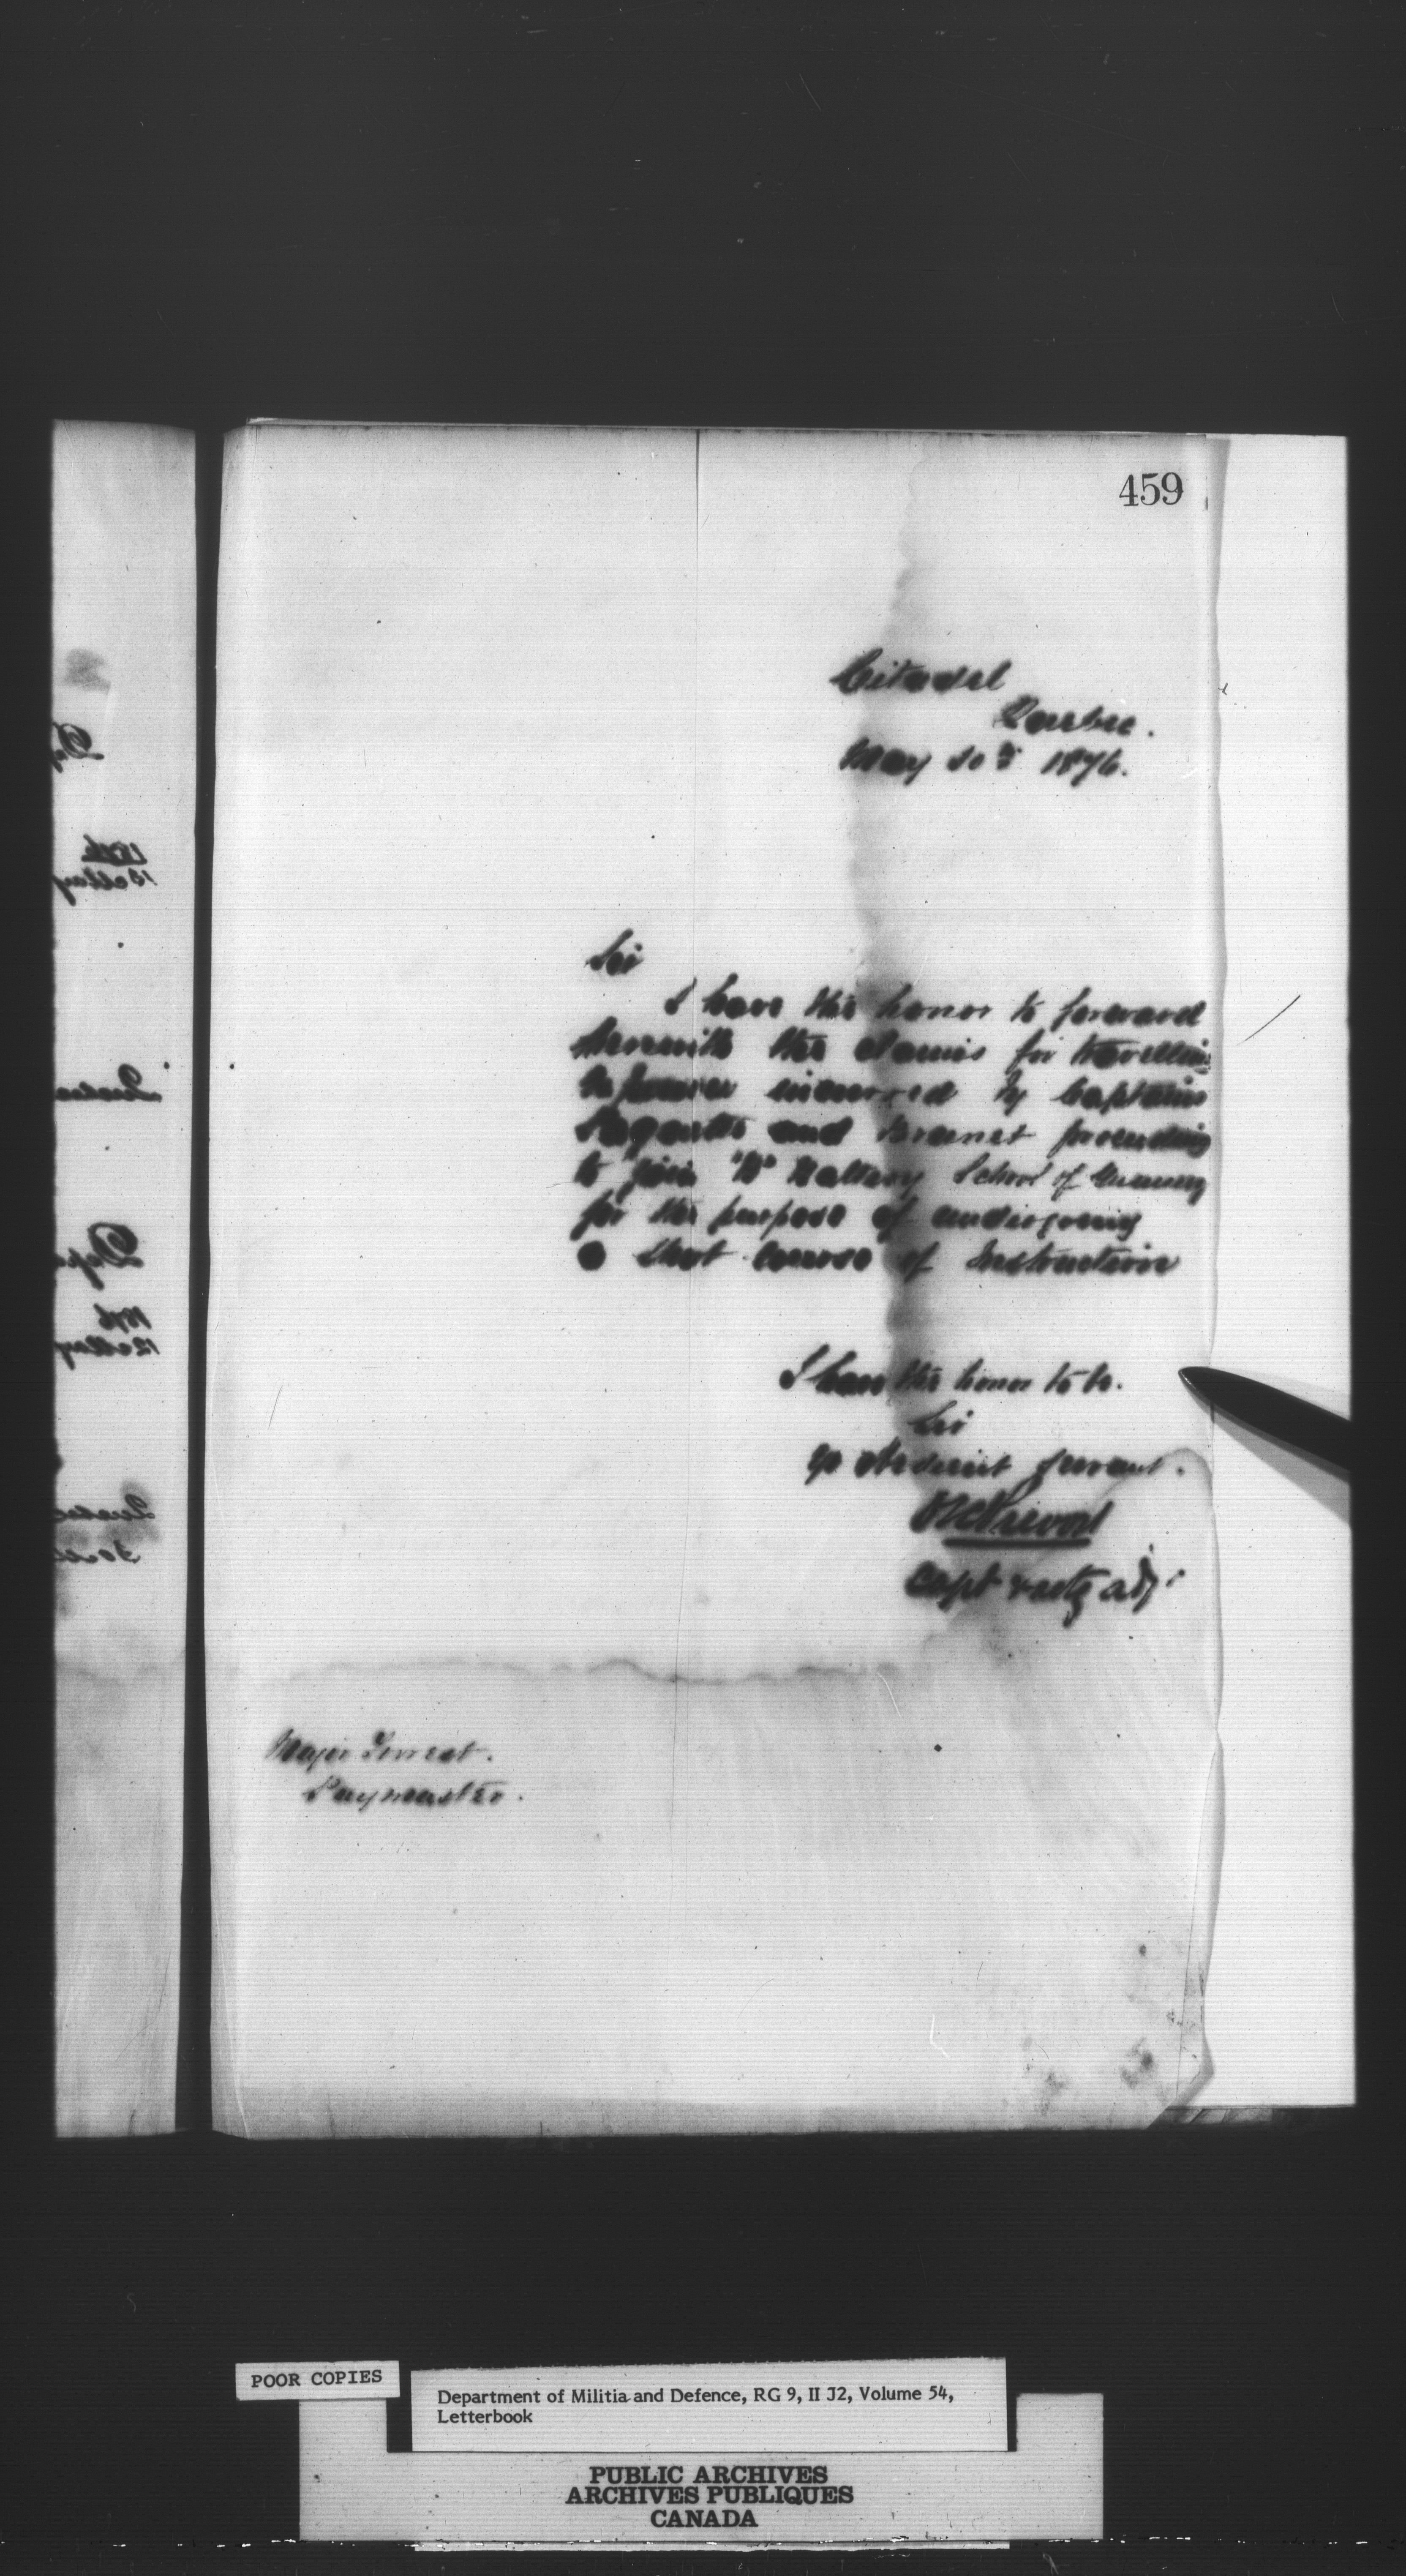 459
Citadel
Quebec.
May 1876.
Sir
I have the honor to forward
herewith the claims for travelling
expenses incurred by Captains
and proceeding
to join "B" Battery School of Gunnery
for the purpose of undergoing
a short course of Instruction
I have the honor to be.
Sir
yr obedient servant.
Capt & actg adj.
Major Forrest.
Paymaster.
POOR COPIES
Department of Militia and Defence, RG 9, II J2, Volume 54,
Letterbook
PUBLIC ARCHIVES
ARCHIVES PUBLIQUES
CANADA